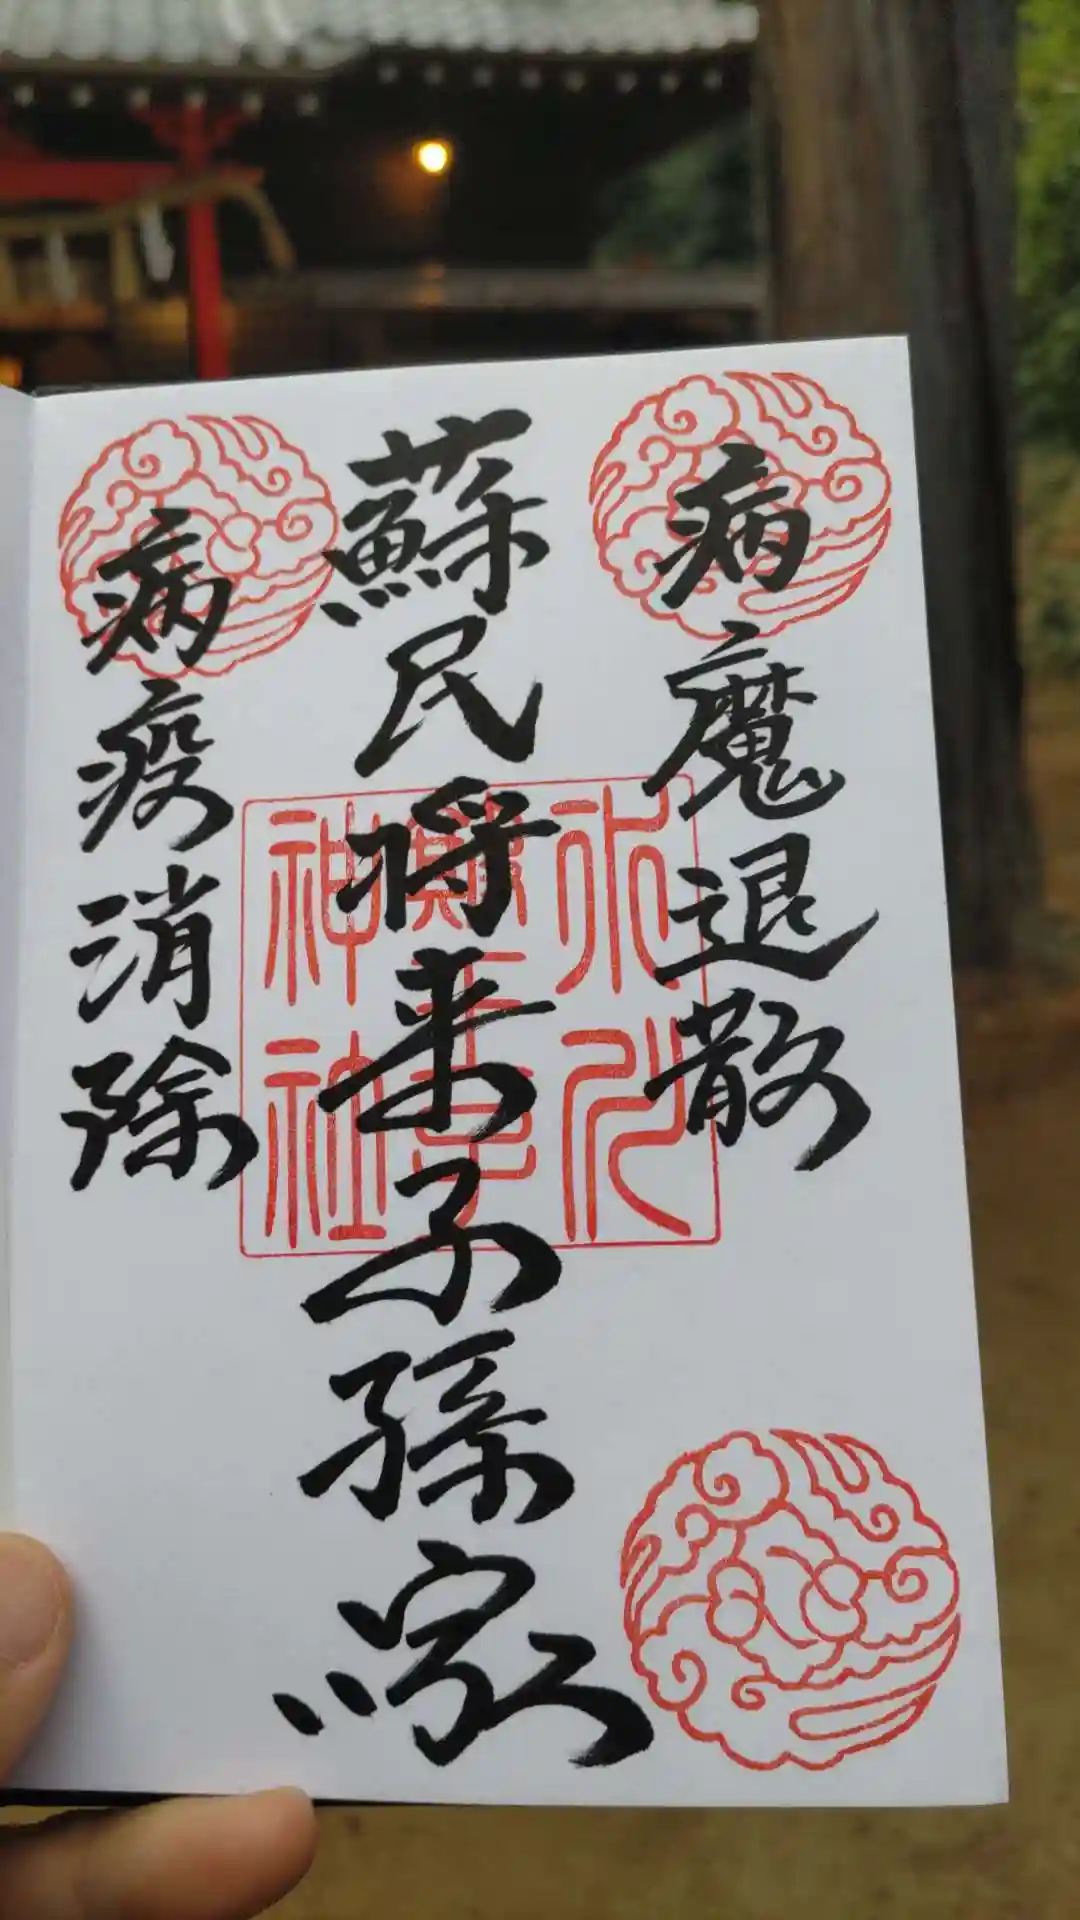 病魔退散
蘇民将来子孫家
病疫消除
神社